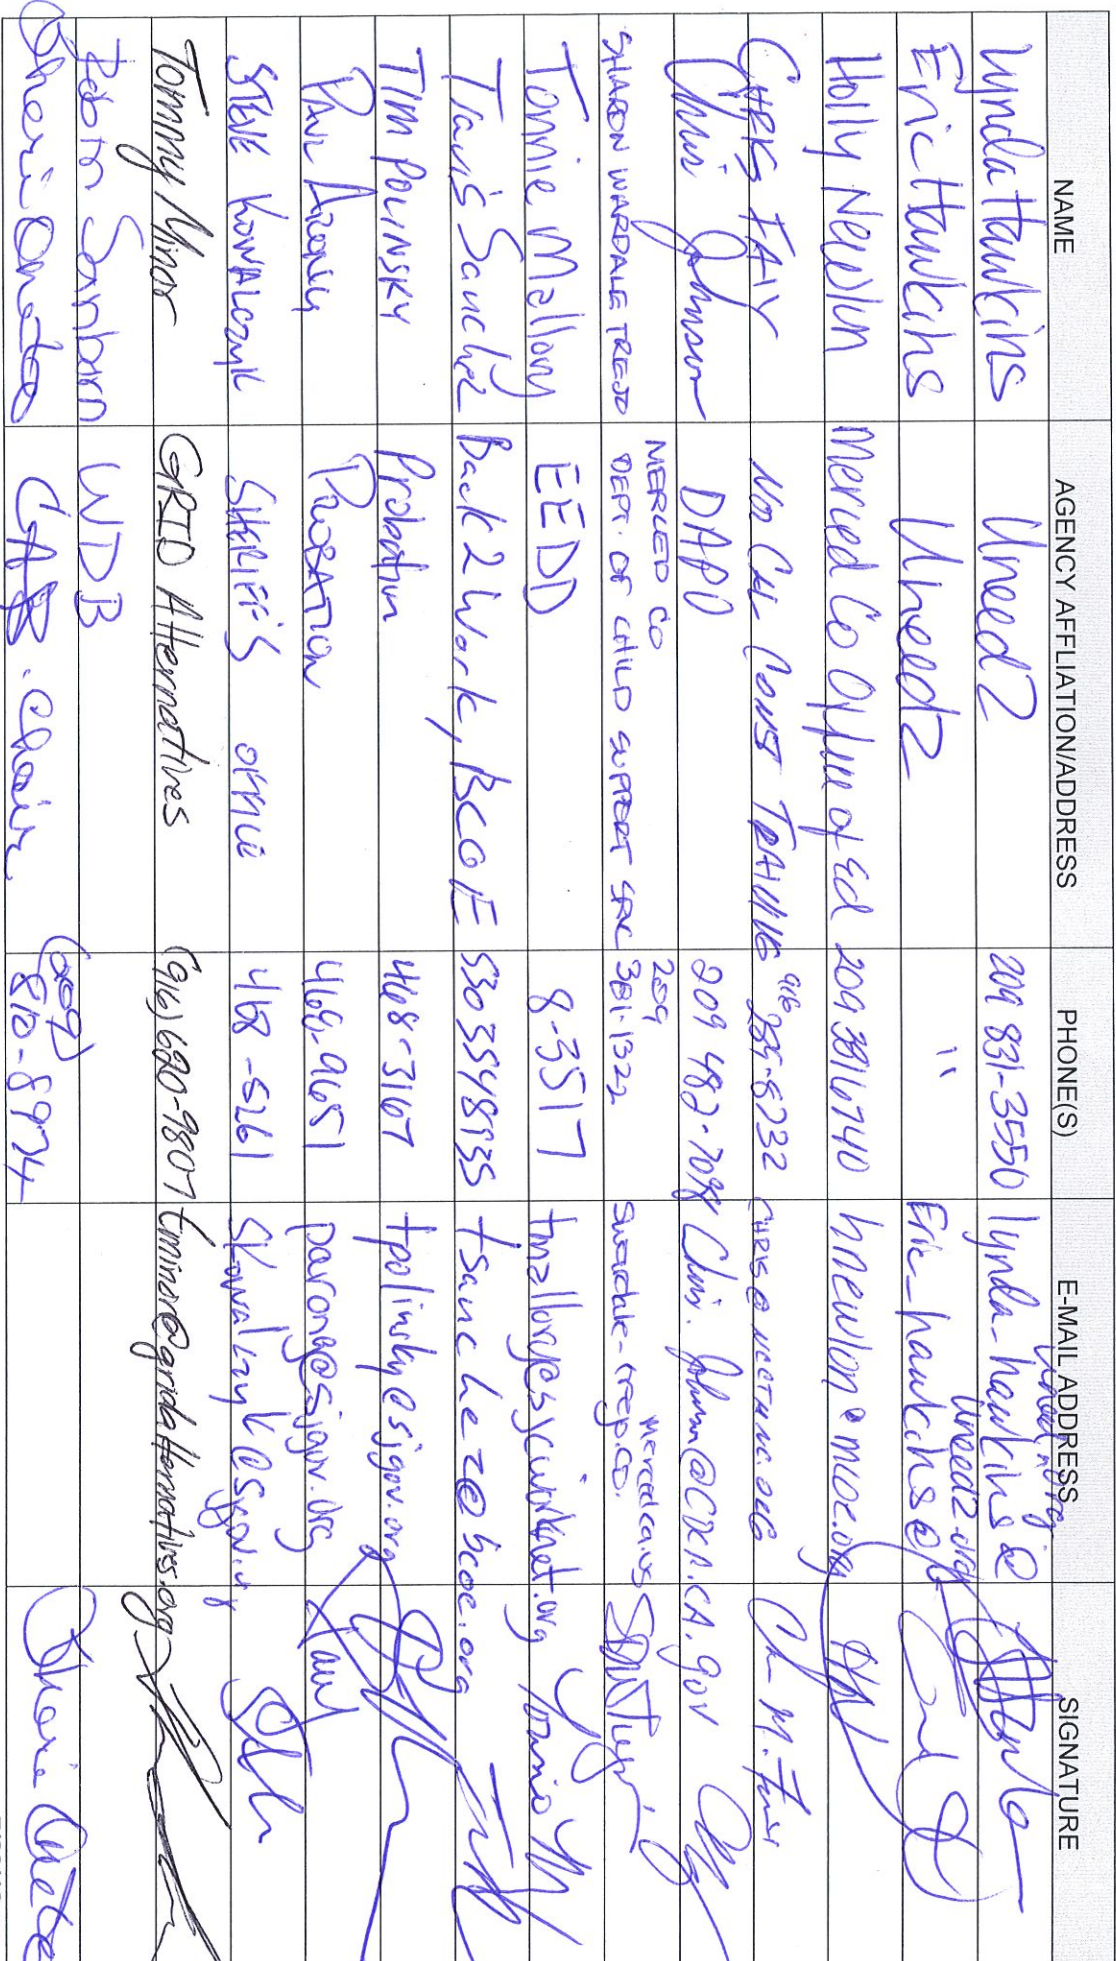 NAME AGENCY AFFLIATION/ADDRESS PHONE(S) E-MAIL ADDRESS SIGNATURE
Lynda Hawkins Uneed2 209 831-3550 lynda-hawkins@ uneed2.org
Eric Hawkins Uneed2 " Eric_hawkins@ uneed2.org
Holly Newlon Merced Co Office of Ed 209 381 6740 hnewlon@mcoe.org
CHRIS FAIY Nor Cal Const TRAINING 916 285-8232 CHRIS@NCCTINC.ORG
Chris Johnson DAPO 209 482-7098 Chris.Johnson@CDCR.CA.gov
SHARON WARDALE TREJO MERCED CO DEPT. OF CHILD SUPPORT SRVC 209 381-1322
Tonnie Mallory EEDD 8-3517 tmallory@sjcworknet.org
Travis Sanchez Back 2 Work, BCOE 5303548935 tsanchez@bcoe.org
TIM POLINSKY Probation 468-3167 tpolinsky@sjgov.org
PROBATION 468-9651 parong@sjgov.org
STEVE KOWALCZYK SHERIFF'S OFFICE 468-5261 Skowalczyk@sjgov.org
Tommy Minor GRID Alternatives (916) 620-9807 tminor@gridalternatives.org
Sanborn WDB
Sheri CAB.Chair (209) 810-8974